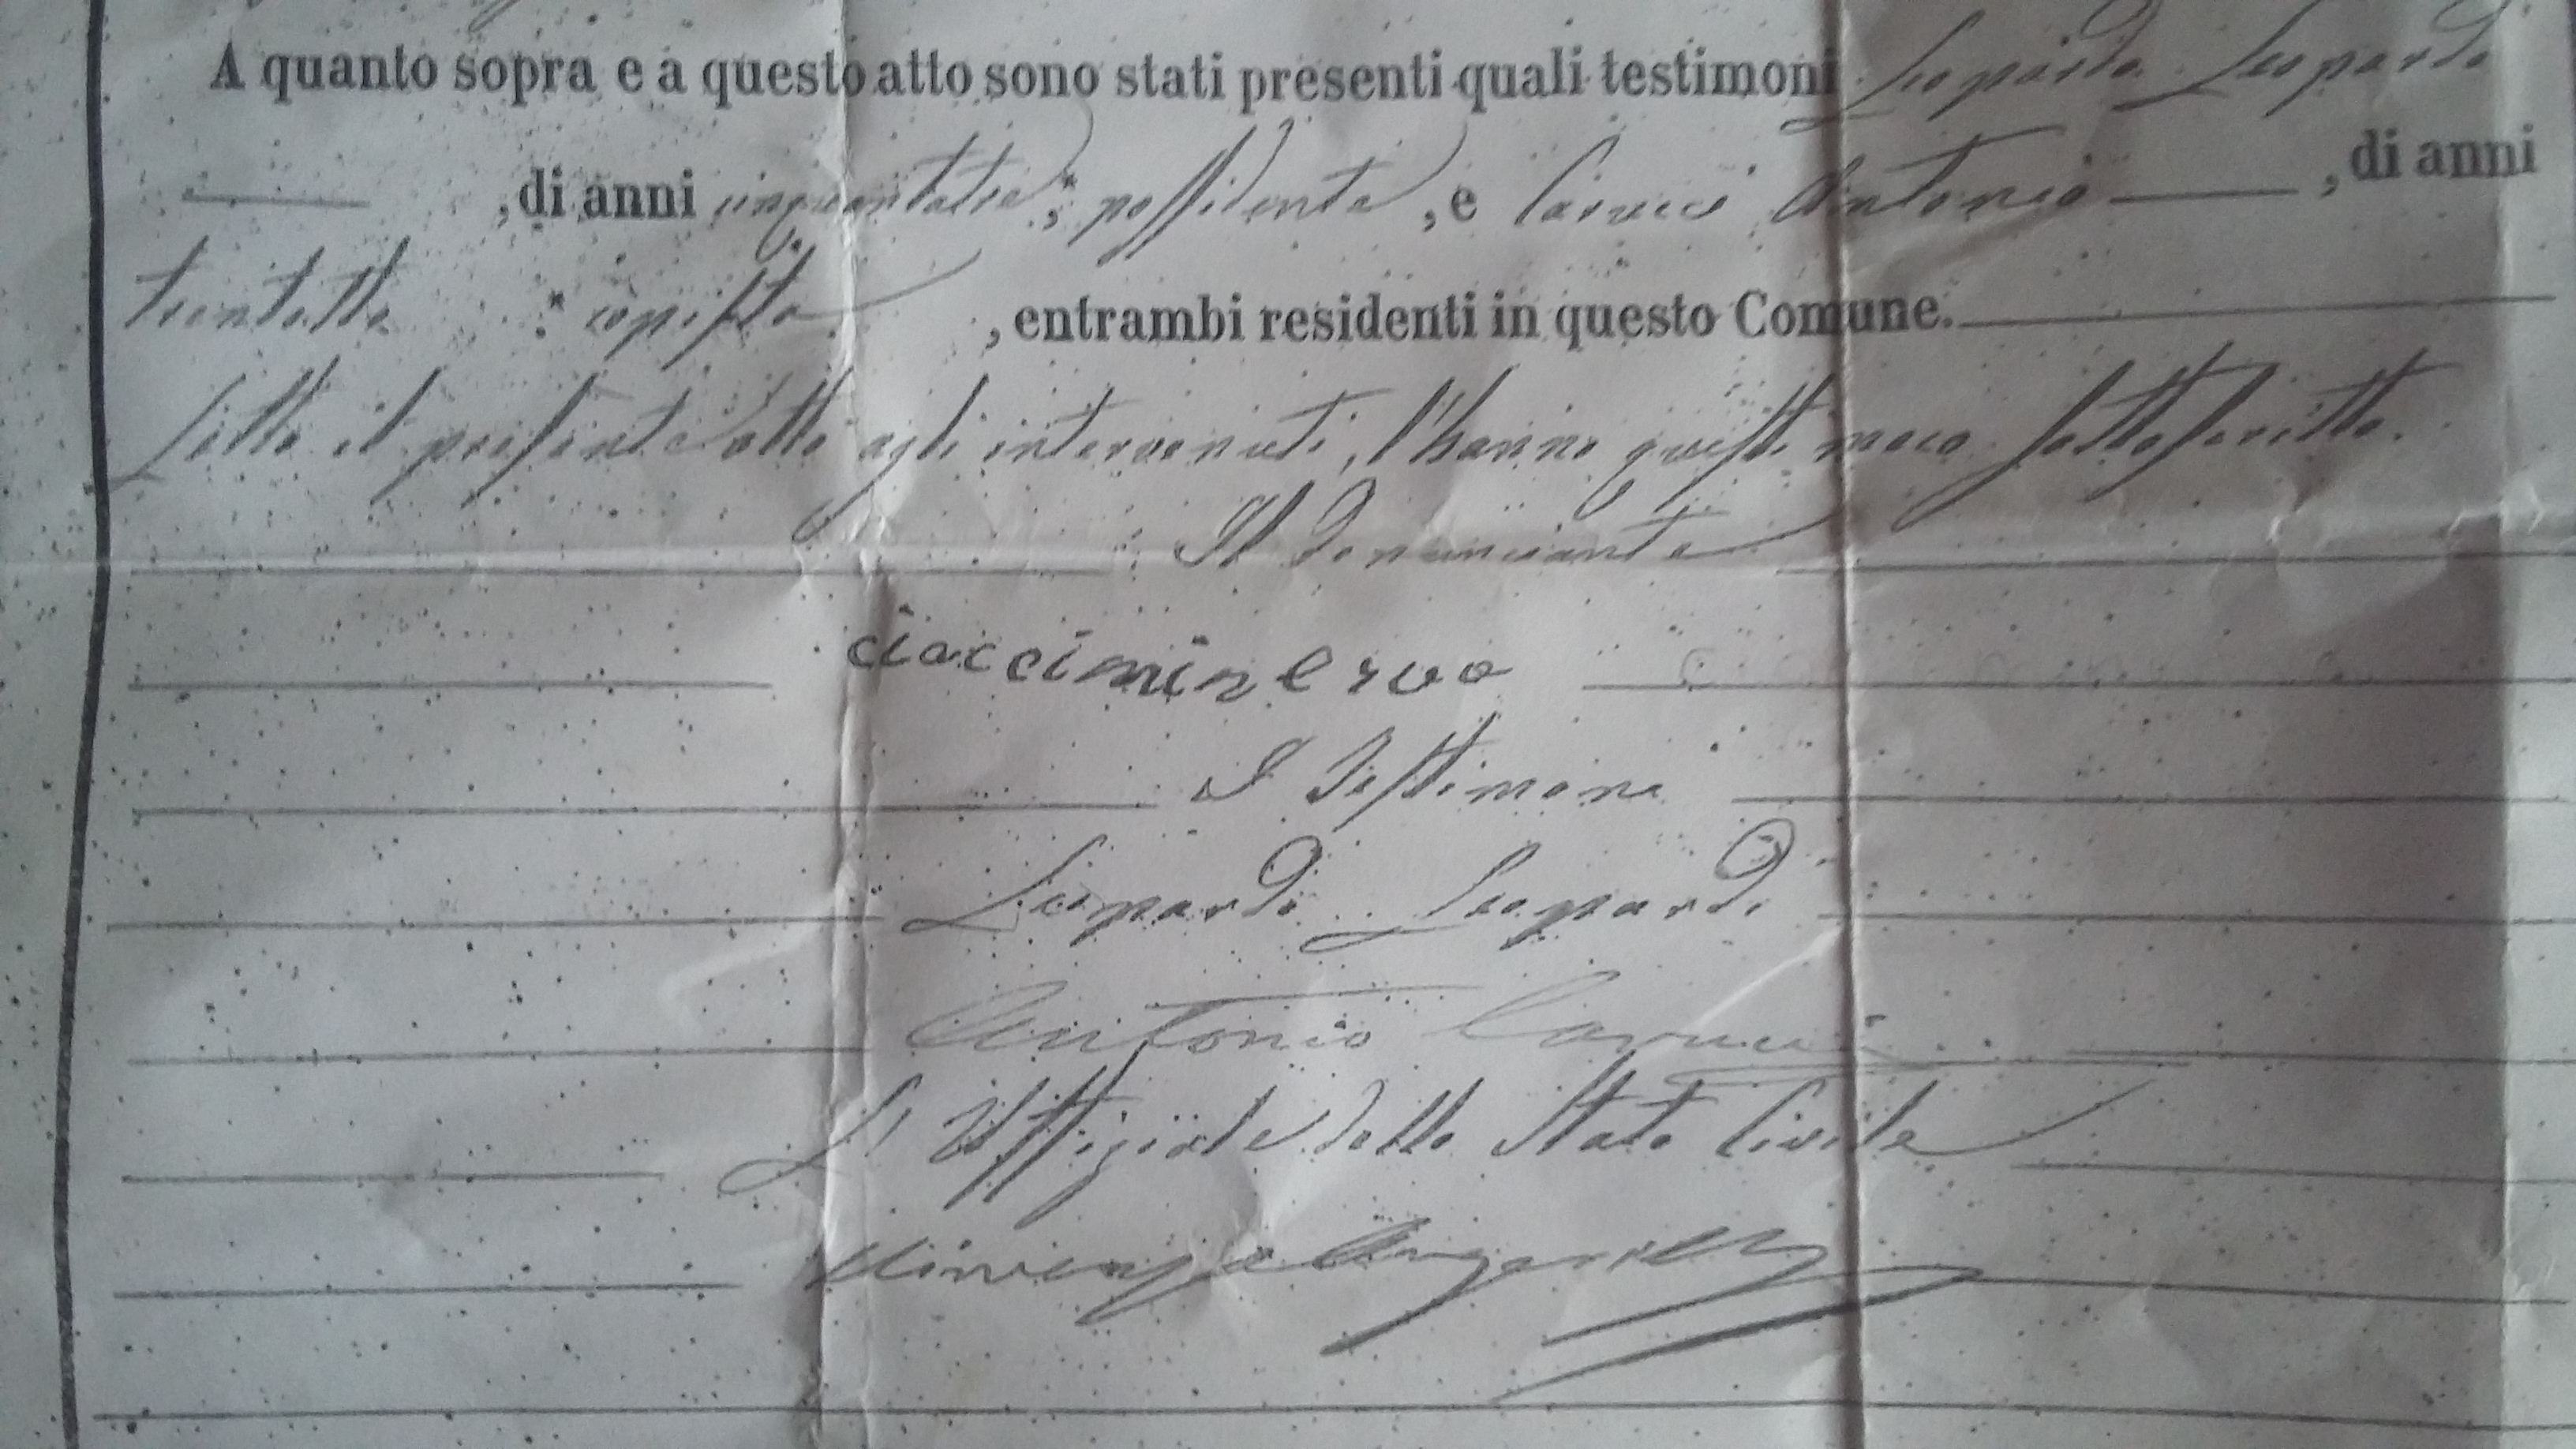 A quanto sopra e a questo atto sono stati presenti quali testimoni Leopardi Leopardo
, di anni cinquantatre, possidente, e Carucci Antonio, di anni
trentotto copista, entrambi residenti in questo Comune.
Letto il presente atto agli intervenuti, l'hanno questi meco sottoscritto.
Il Denunciante
ciacciminervo
I Testimoni
Leopardi Leopardi
Antonio Carucci
L'Uffiziale dello Stato Civile